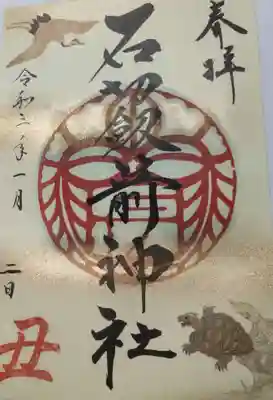 奉拝
石 前神社
令和三年一月
二日
丑